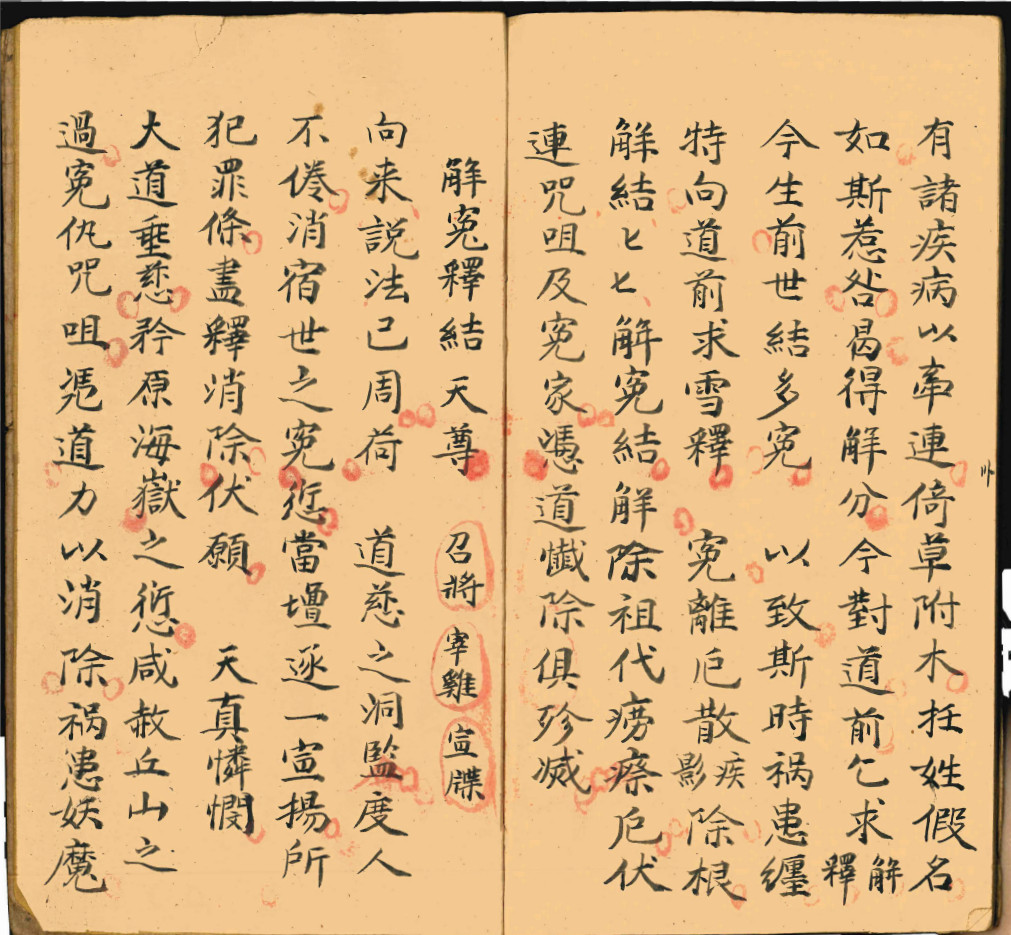 有諸疾病以牽連倚草附木抂姓假名
如斯惹咎曷得解分今對道前乞求解釋
今生前世結多冤 以致斯時祸患纏
特向道前求雪釋 冤離厄散疾影除根
解結匕匕解冤結解除祖代痨瘵厄伏
連咒咀及冤家憑道懺除俱殄滅
解冤釋結 天尊 召將 宰雞 宣牒
向来説法已周荷 道慈之洞監度人
不倦消宿世之冤愆當壇逐一宣揚所
犯罪條盡釋消除伏願 天真憐憫
大道垂慈矜原海嶽之愆咸赦丘山之
過冤仇咒咀憑道力以消除祸患妖魔